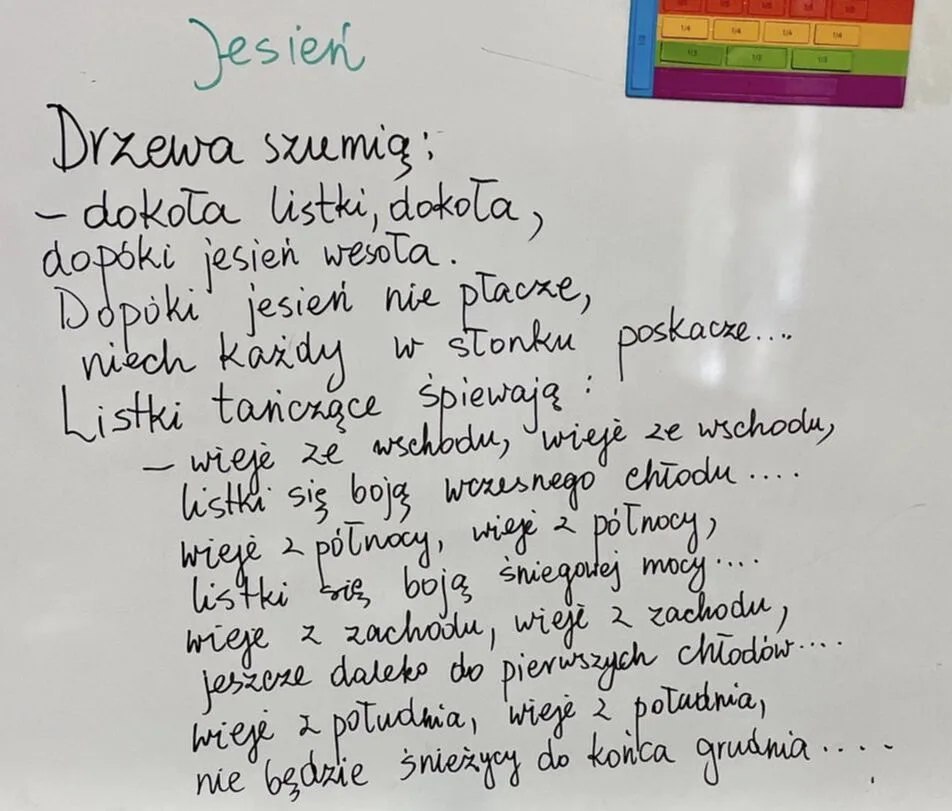 Jesień
1/5 1/5 1/5 1/5 1/5
1/4 1/4 1/4 1/4
1/3 1/3 1/3
Drzewa szumią:
- dokoła listki, dokoła,
dopóki jesień wesoła.
Dopóki jesień nie płacze,
niech każdy w słonku poskacze....
Listki tańczące śpiewają:
- wieje ze wschodu, wieje ze wschodu,
listki się boją wczesnego chłodu....
wieje z północy, wieje z północy,
listki się boją śniegowej mocy....
wieje z zachodu, wieje z zachodu,
jeszcze daleko do pierwszych chłodów....
wieje z południa, wieje z południa,
nie będzie śnieżycy do końca grudnia....